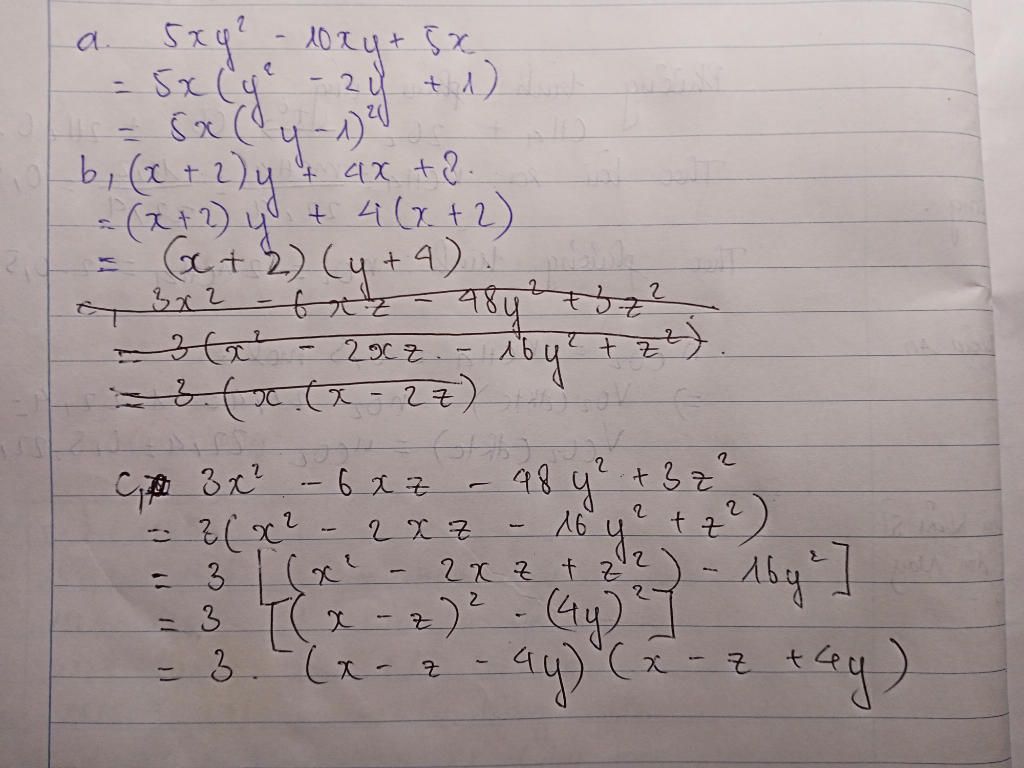 a. 5xy² - 10xy + 5x
= 5x(y² - 2y + 1)
= 5x(y - 1)²
b, (x + 2)y + 4x + 8.
= (x+2) y + 4(x + 2)
= (x + 2) (y + 4).
c, 3x² - 6xz - 48y² + 3z²
= 3(x² - 2xz - 16y² + z²).
= 3 (x.(x - 2z)
c, 3x² - 6xz - 48y² + 3z²
= 3(x² - 2xz - 16y² + z²)
= 3 [(x² - 2xz + z²) - 16y²]
= 3 [(x - z)² - (4y)²]
= 3. (x - z - 4y) (x - z + 4y)